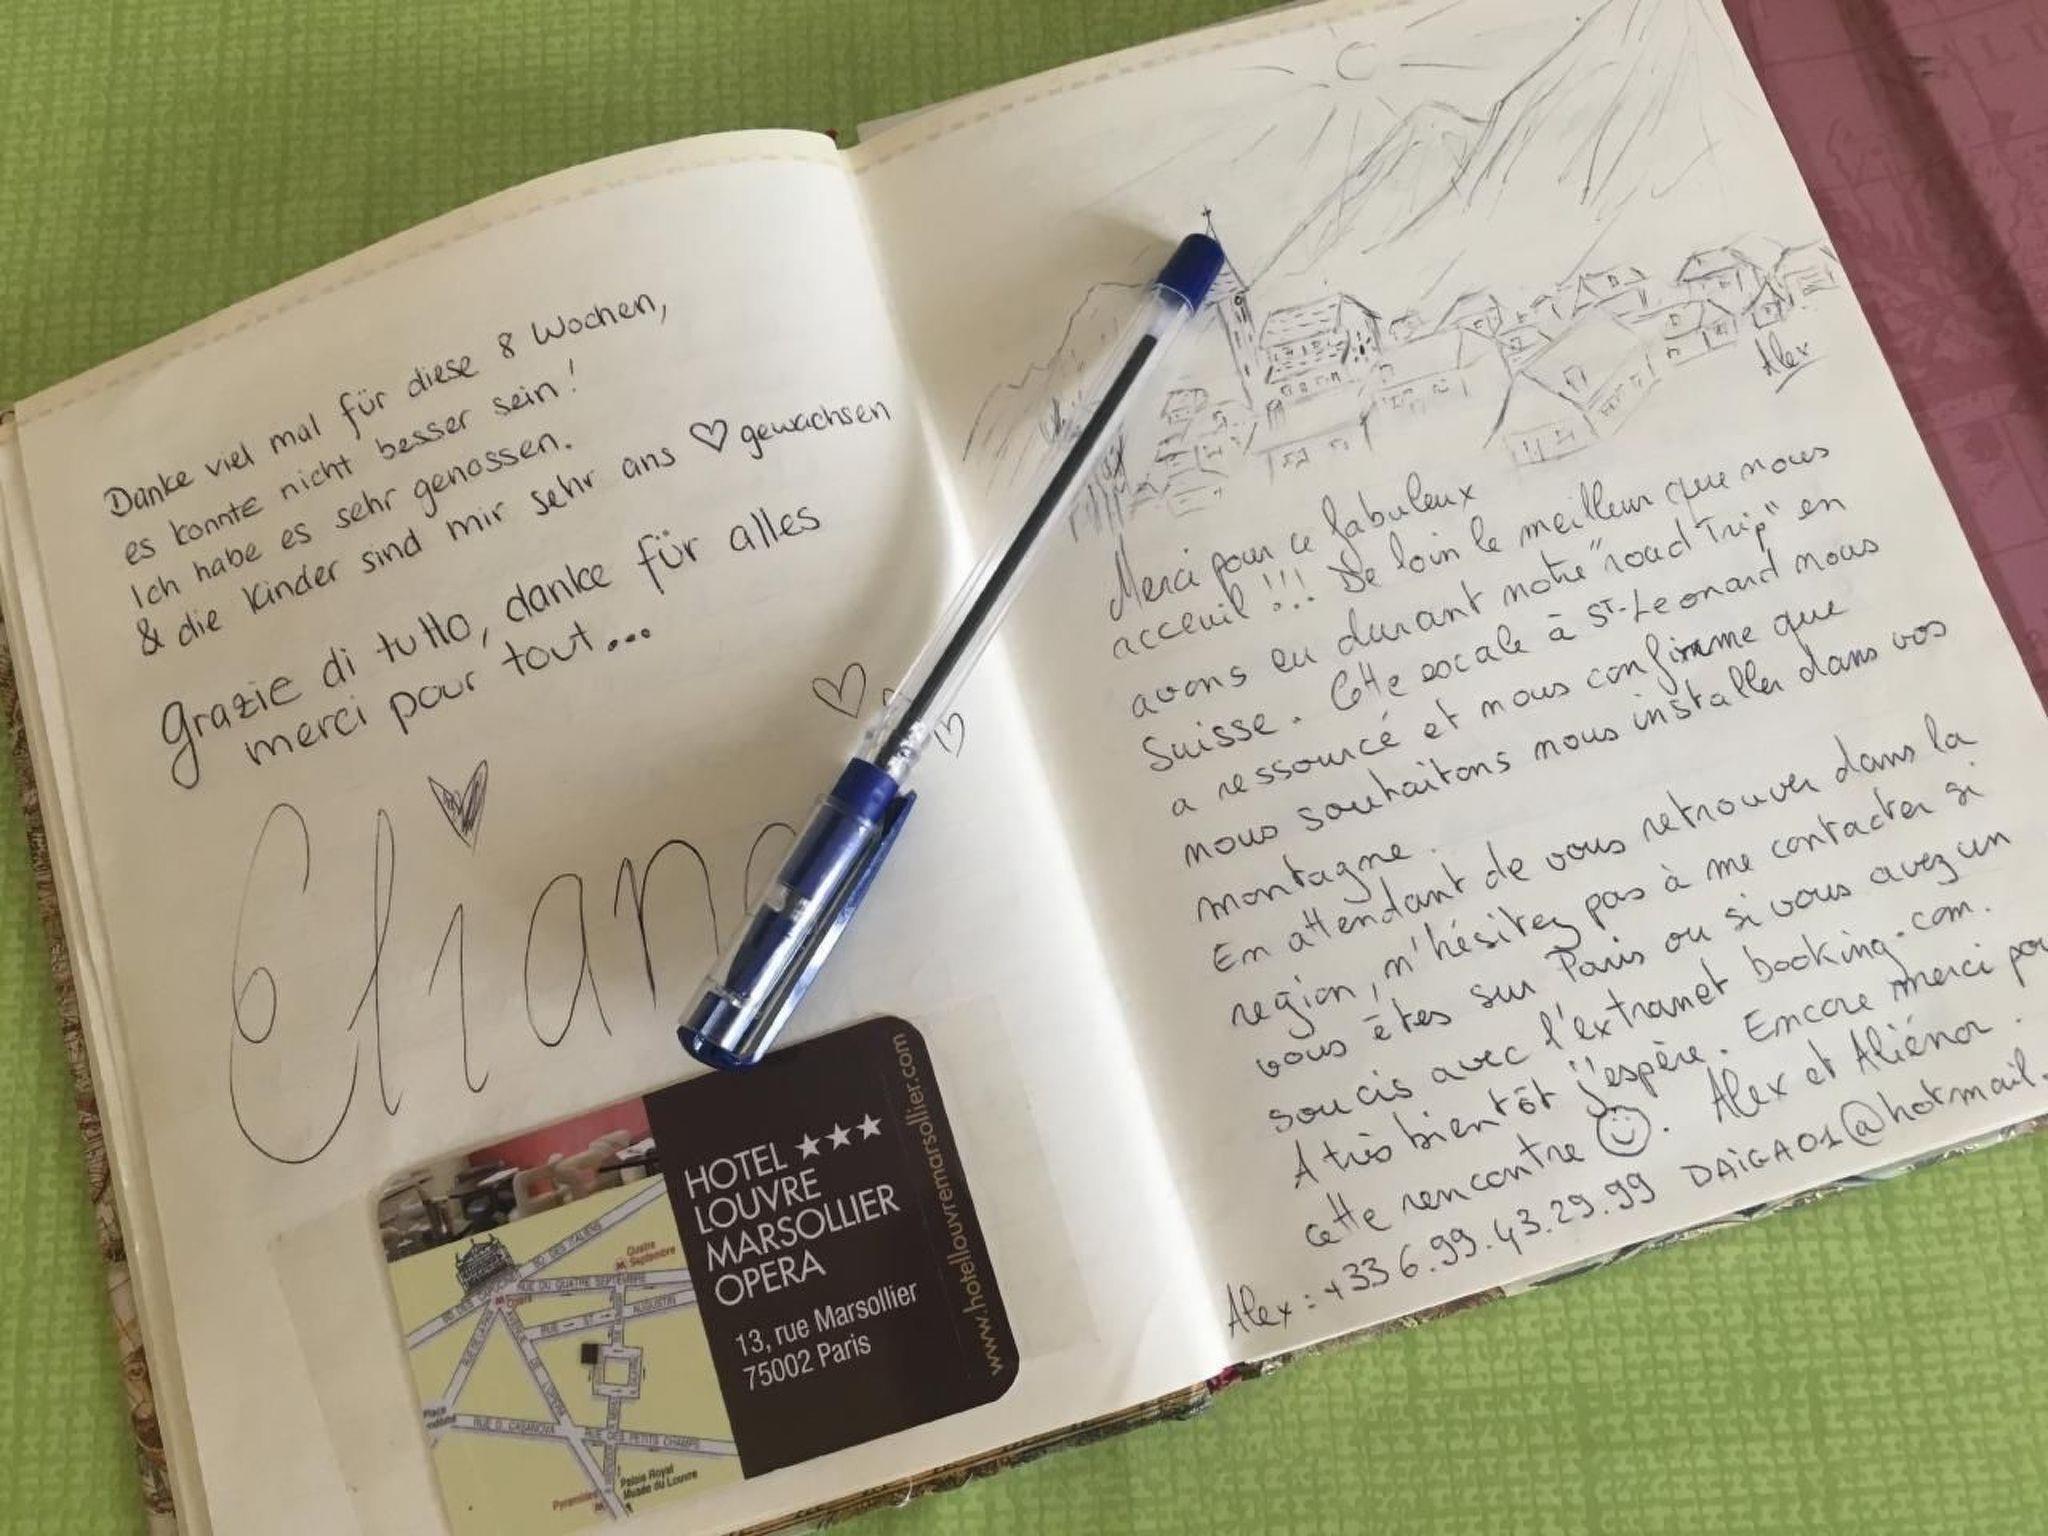 Danke viel mal für diese 8 Wochen,
es konnte nicht besser sein!
Ich habe es sehr genossen.
& die Kinder sind mir sehr ans ♡ gewachsen
Grazie di tutto, danke für alles
merci pour tout...
Elian
HOTEL ★★★
LOUVRE
MARSOLLIER
OPERA
13, rue Marsollier
75002 Paris
www.hotellouvremarsollier.com
BD DES ITALIENS
Quatre
Septembre
RUE DU QUATRE SEPTEMBRE
AUGUSTIN
RUE D. CASANOVA
RUE DES PETITS CHAMPS
Place
Palais Royal
Musée du Louvre
Pyramides
Alex
Merci pour ce fabuleux
acceuil !!! De loin le meilleur que nous
avons eu durant notre "road Trip" en
Suisse. Cette escale à ST-Leonard nous
a ressourcé et nous confirme que
nous souhaitons nous installer dans vos
montagne.
En attendant de vous retrouver dans la
region, n'hésitez pas à me contacter si
vous êtes sur Paris ou si vous avez un
soucis avec l'extranet booking.com.
A très bientôt j'espère. Encore merci pou
cette rencontre ☺. Alex et Aliénor.
Alex : +33 6.99.43.29.99 DAIGA01@hotmail.